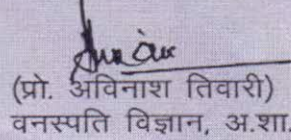 (प्रो. अविनाश तिवारी)
वनस्पति विज्ञान, अ.शा.